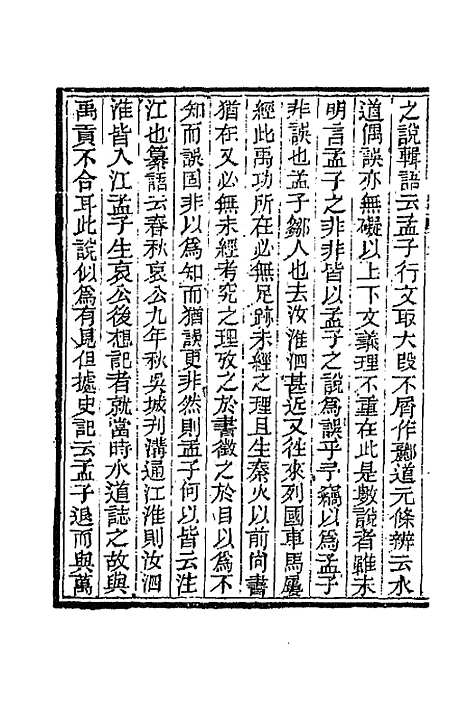 之說輯語云孟子行文取大段不屑作酈道元條辨云水
道偶誤亦無礙以上下文義理不重在此是數說者雖未
明言孟子之非非皆以孟子之說爲誤乎予竊以爲孟子
非誤也孟子鄒人也去汝淮泗甚近又往來列國車馬屢
經此禹功所在必無足跡未經之理且生秦火以前尙書
猶在又必無未經考究之理攷之於書徵之於目以爲不
知而誤固非以爲知而猶誤更非然則孟子何以皆云注
江也纂語云春秋哀公九年秋吳城刋溝通江淮則汝泗
淮皆入江孟子生哀公後想記者就當時水道誌之故與
禹貢不合耳此說似爲有見但據史記云孟子退而與萬